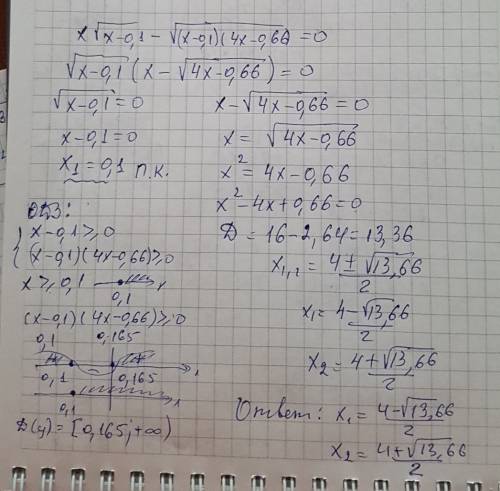 x√(x-0,1) - √((x-0,1)(4x-0,66)) = 0
√(x-0,1) (x - √(4x-0,66)) = 0
√(x-0,1) = 0
x-0,1=0
x₁=0,1 п.к.
x - √(4x-0,66) = 0
x = √(4x-0,66)
x² = 4x-0,66
x²-4x+0,66=0
D = 16-2,64=13,36
x₁,₂ = (4±√13,66)/2
x₁ = (4-√13,66)/2
x₂ = (4+√13,66)/2
ОДЗ:
{ x-0,1≥0
(x-0,1)(4x-0,66)≥0
x≥0,1
0,1 x
(x-0,1)(4x-0,66)≥0
0,1 0,165
+ - +
0,1 0,165 x
0,1 x
D(y) = [0,165; +∞)
Ответ: x₁ = (4-√13,66)/2
x₂ = (4+√13,66)/2